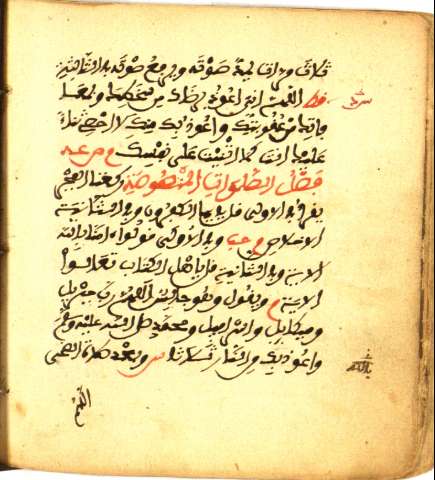 ثلاث مرات يمد صوته ويرفع صوته بالثالثة
اللهم اني اعوذ برضاك من سخطك وبمعا
فاتك من عقوبتك واعوذ بك منك لا احصي ثناء
عليك انت كما اثنيت على نفسك
فصل الصلوات المنصوصة ركعتا الفجر
يقرأ في الاولى قل يايها الكفرون وفي الثانية
الاخلاص م حب وفي الأولى قولوا امنا بالله
الاية وفي الثانية قل ياهل الكتاب تعالوا
الاية م ويقول وهو جالس اللهم رب جبريل
وميكايل واسرافيل ومحمد صلى الله عليه وسلم
واعوذ بك من النار ثلاثا س وبعد صلاة الضحى
اللهم